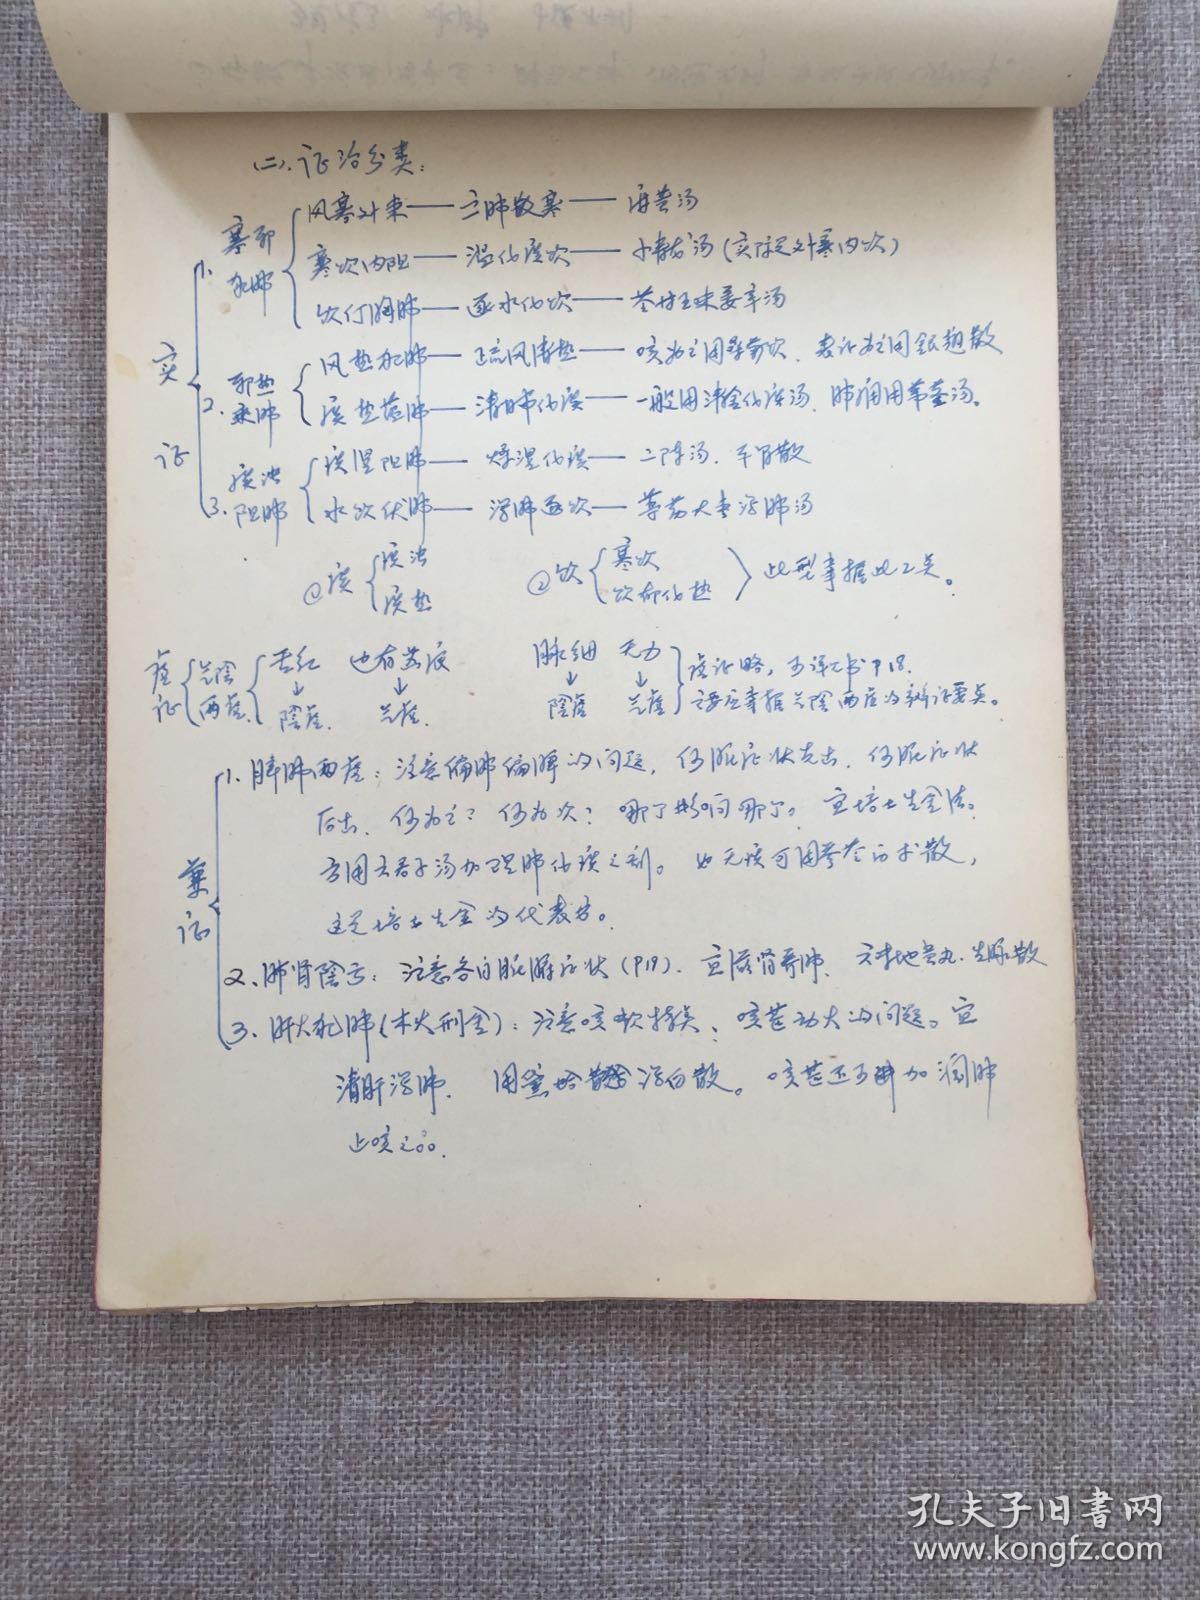 (二)、证治分类：
实证
1. 寒邪犯肺
风寒外束——宣肺散寒——麻芩汤
寒饮内阻——温化痰饮——小青龙汤(实际是外寒内饮)
饮停胸肺——逐水化饮——苓甘五味姜辛汤
2. 邪热乘肺
风热犯肺——疏风清热——咳为主用桑菊饮、表证为主用銀翘散
痰热蕴肺——清肺化痰——一般用清金化痰汤、肺痈用苇茎汤。
3. 痰浊阻肺
痰湿阻肺——燥湿化痰——二陈汤、平胃散
水饮伏肺——泻肺逐饮——葶苈大枣泻肺汤
①痰 痰浊 痰热
②饮 寒饮 饮郁化热
此型掌握此2点。
虚证 气陰两虚
舌红 ↓ 陰虚.
也有苔液 ↓ 气虚.
脉细 ↓ 陰虚
无力 ↓ 气虚
虚证略，可详见书P18.
主要应掌握气陰两虚的辨证要点。
兼证
1. 脾肺两虚：注意偏肺偏脾的问题，何脏症状先出、何脏症状
后出、何为主？何为次？哪个影响哪个。宜培土生金法。
方用六君子汤加理肺化痰之剂。如无痰可用参苓白术散，
这是培土生金的代表方。
2、肺肾陰亏：注意各自脏腑症状(P19)、宜滋肾养肺、六味地黄丸、生脉散
3、肝火犯肺(木火刑金)：注意咳嗽特点、咳甚动火的问题。宜
清肝泻肺、用黛蛤散合泻白散。咳甚还可加润肺
止咳之品.
孔夫子旧书网
www.kongfz.com